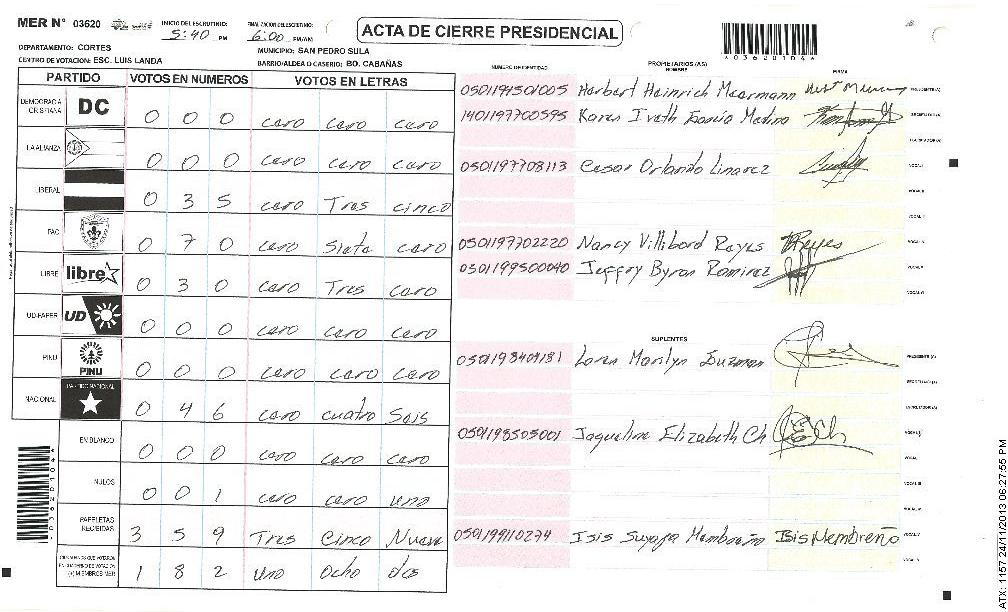 MER N° 03620
INICIO DEL ESCRUTINIO: 5:40 PM
FINALIZACION DEL ESCRUTINIO: 6:00 PM/AM
ACTA DE CIERRE PRESIDENCIAL
*03620104*
DEPARTAMENTO: CORTES
MUNICIPIO: SAN PEDRO SULA
CENTRO DE VOTACION: ESC. LUIS LANDA
BARRIO/ALDEA O CASERIO: BO. CABAÑAS
PARTIDO VOTOS EN NUMEROS VOTOS EN LETRAS
DEMOCRACIA CRISTIANA DC 0 0 0 cero cero cero
LA ALIANZA 0 0 0 cero cero cero
LIBERAL 0 3 5 cero Tres cinco
PAC 0 7 0 cero Siete cero
LIBRE libre 0 3 0 cero Tres cero
UD-FAPER UD 0 0 0 cero cero cero
PINU PINU 0 0 0 cero cero cero
NACIONAL PARTIDO NACIONAL 0 4 6 cero cuatro Seis
EN BLANCO 0 0 0 cero cero cero
NULOS 0 0 1 cero cero uno
PAPELETAS RECIBIDAS 3 5 9 Tres Cinco Nueve
CIUDADANOS QUE VOTARON EN CUADERNO DE VOTACION (+) MIEMBROS MER 1 8 2 uno Ocho dos
*03620104*
NUMERO DE IDENTIDAD PROPIETARIOS (AS) NOMBRE FIRMA
0501194501005 Herbert Heinrich PRESIDENTE (A)
1401197700595 Karen Iveth SECRETARIO (A)
ESCRUTADOR (A)
0501197708113 Cesar Orlando Linarez VOCAL I
VOCAL II
0501197702220 Nancy Villibord Reyes Reyes
0501199500040 Jeffry Byron Ramirez
SUPLENTES
0501198409181 Marilyn Guzman PRESIDENTE (A)
SECRETARIO (A)
ESCRUTADOR (A)
0501198505001 Jaqueline Elizabeth Ch VOCAL I
0501199110274 Isis Suyapa Membreño Isis Membreño
ATX: 1157 24/11/2013 06:27:55 PM